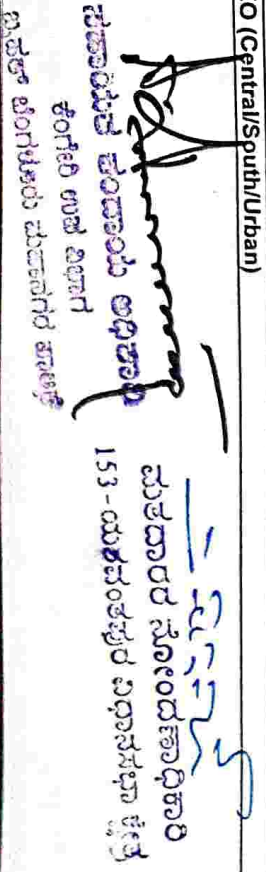 O (Central/South/Urban)
ಸಹಾಯಕ ಕಂದಾಯ ಅಧಿಕಾರಿ
ಕೆಂಗೇರಿ ಉಪ ವಿಭಾಗ
ಬೃಹತ್ ಬೆಂಗಳೂರು ಮಹಾನಗರ ಪಾಲಿಕೆ
ಮತದಾರರ ನೋಂದಣಾಧಿಕಾರಿ
153-ಯಶವಂತಪುರ ವಿಧಾನಸಭಾ ಕ್ಷೇತ್ರ